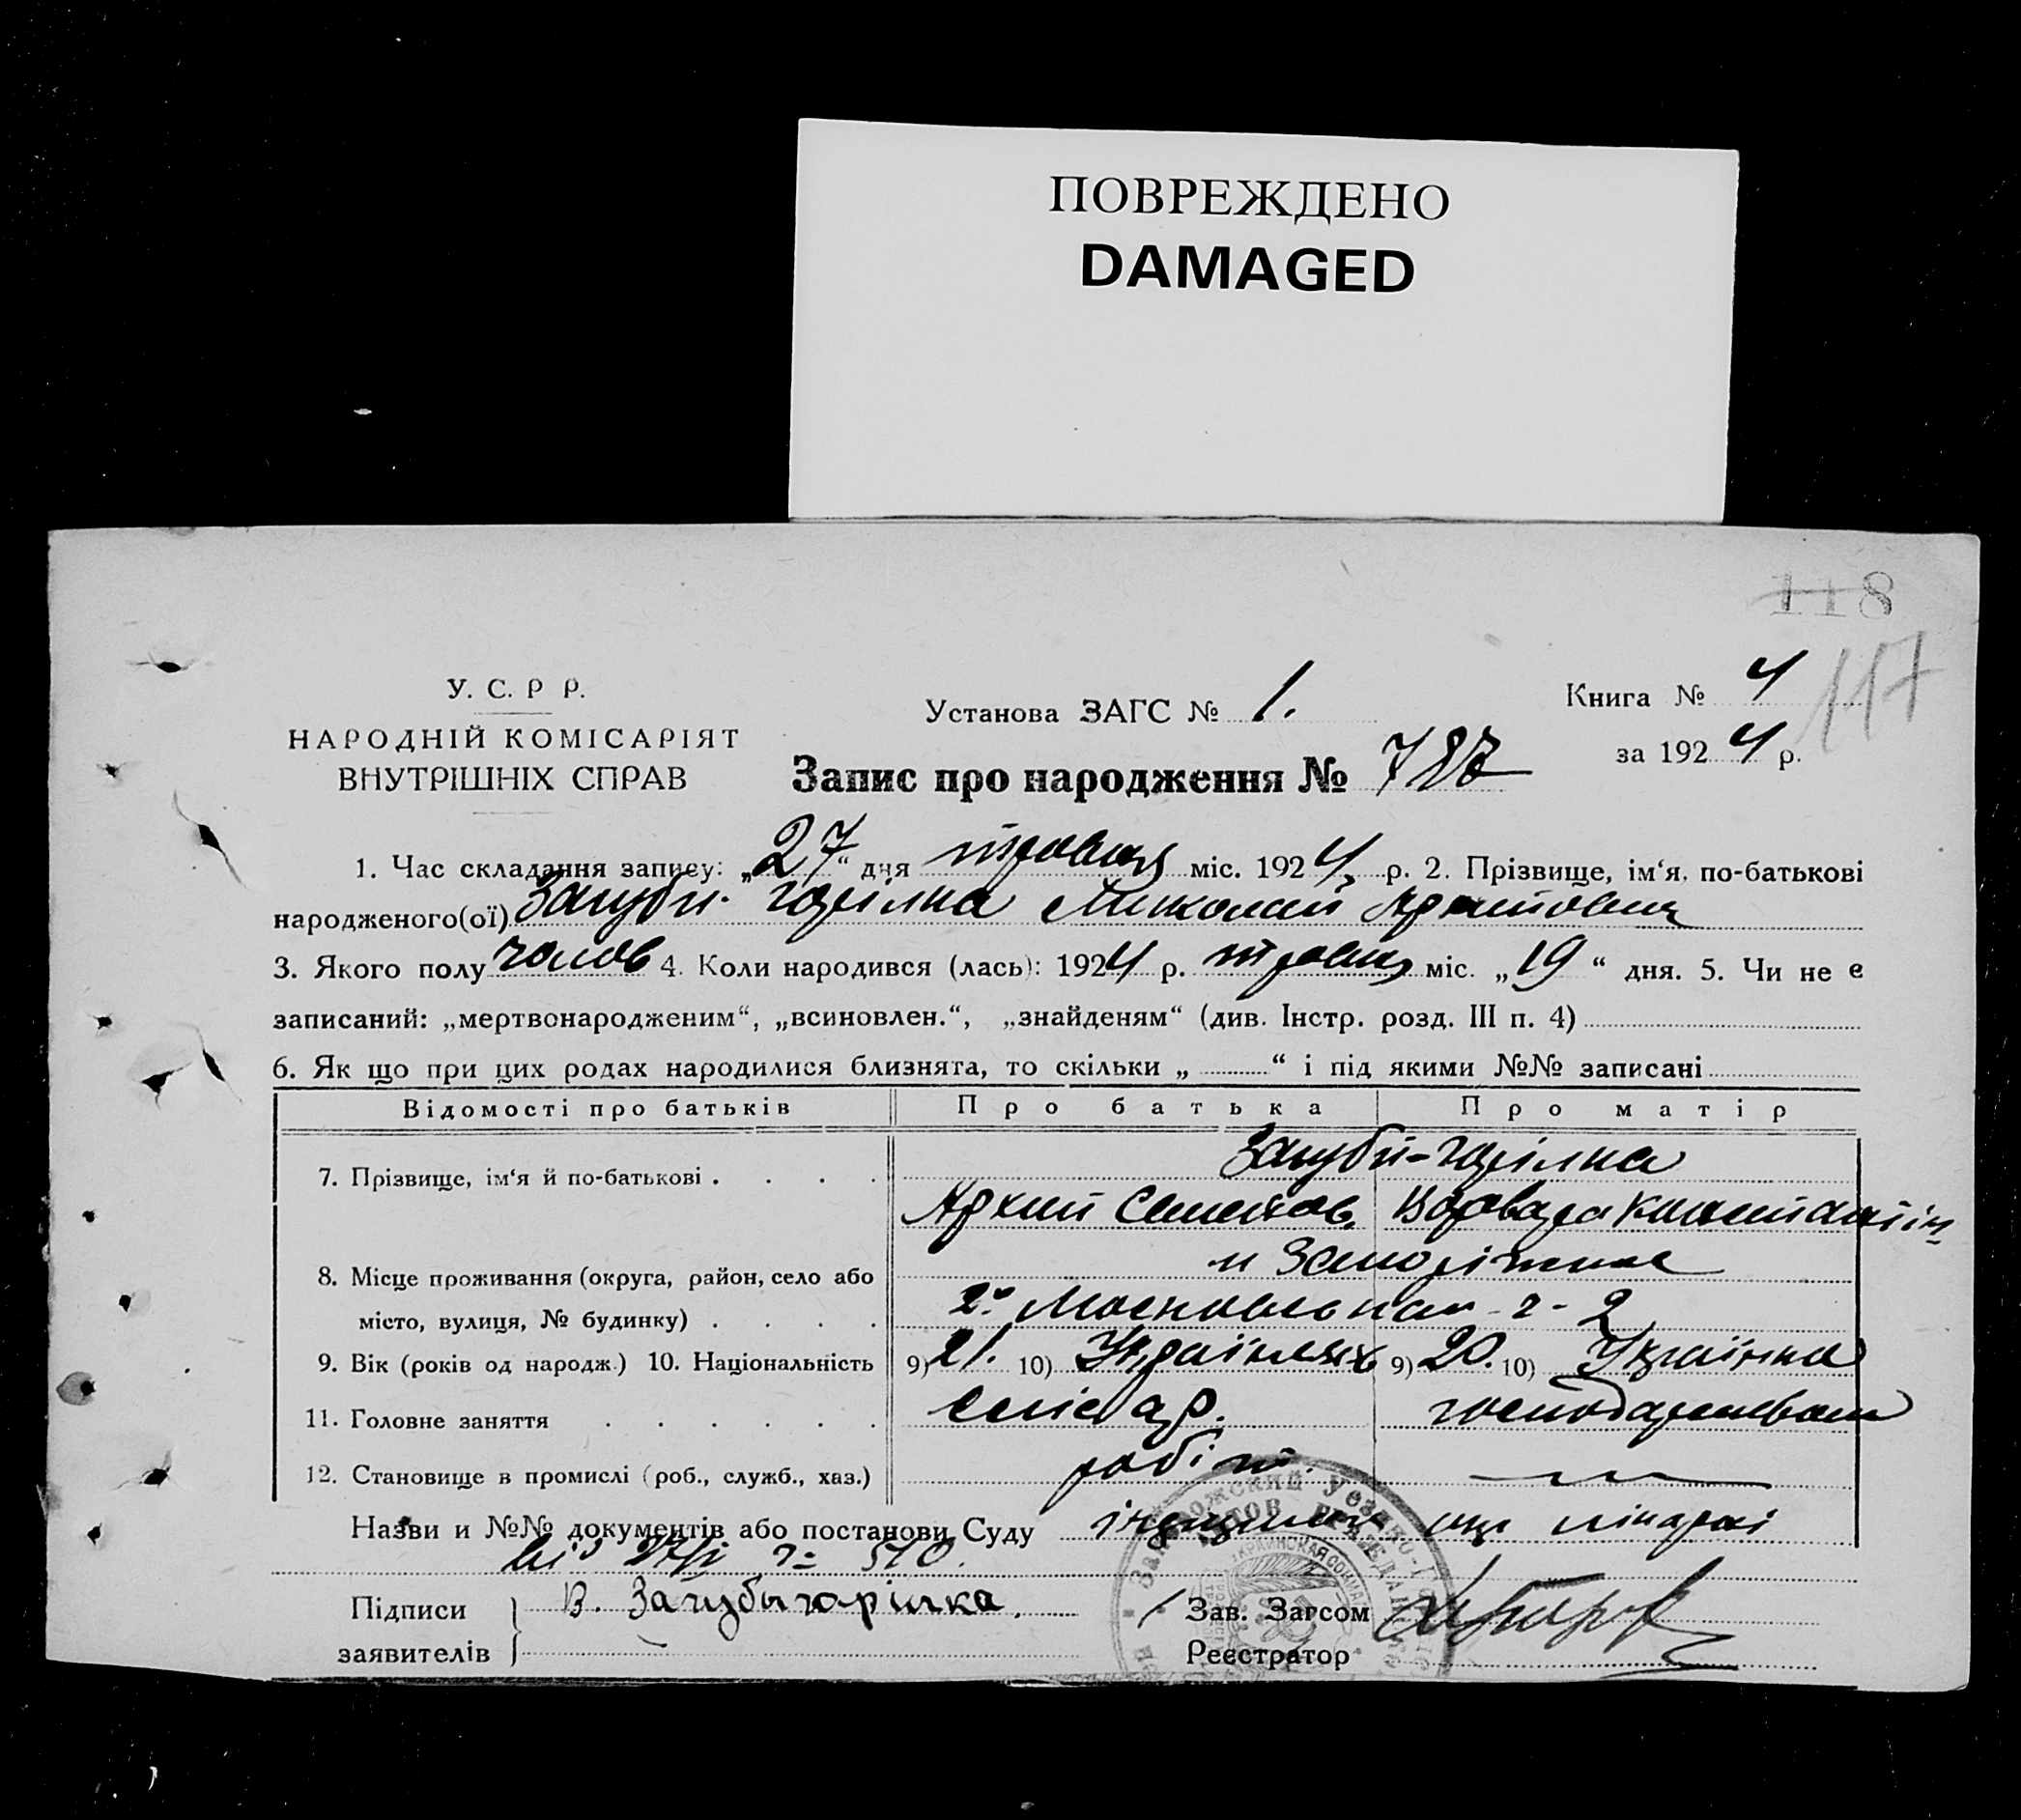 ПОВРЕЖДЕНО
DAMAGED
118
117
У. С. Р Р.
НАРОДНІЙ КОМІСАРІЯТ
ВНУТРІШНІХ СПРАВ
Установа ЗАГС № 1.
Книга № 4
за 1924 р.
Запис про народження № 787
1. Час складання запису: „27“ дня травця міс. 1924 р. 2. Прізвище, ім‘я, по-батькові
народженого(ої) Загуби-горілка Миколай Архипович
3. Якого полу чолов 4. Коли народився (лась): 1924 р. травця міс. „19“ дня. 5. Чи не є
записаний: „мертвонародженим“, „всиновлен.“, „знайденям“ (див. Інстр. розд. III п. 4)
6. Як що при цих родах народилися близнята, то скільки „ “ і під якими №№ записані
Відомості про батьків Про батька Про матір
7. Прізвище, ім‘я й по-батькові . . . . Загуби-горілка
Архип Семенов. Варвара Костантін
8. Місце проживання (округа, район, село або м Запоріжжє
місто, вулиця, № будинку) . . . . Московська ч- 2
9. Вік (років од народж.) 10. Національність 9) 21. 10) Українець 9) 20. 10) Українка
11. Головне заняття . . . . . . слісар. господарював
12. Становище в промислі (роб., служб., хаз.) робіт.
Назви и №№ документів або постанови Суду лікарні
від 27/V № 510.
Підписи В. Загубыгорілка.
заявителів
Зав. Загсом
Реєстратор